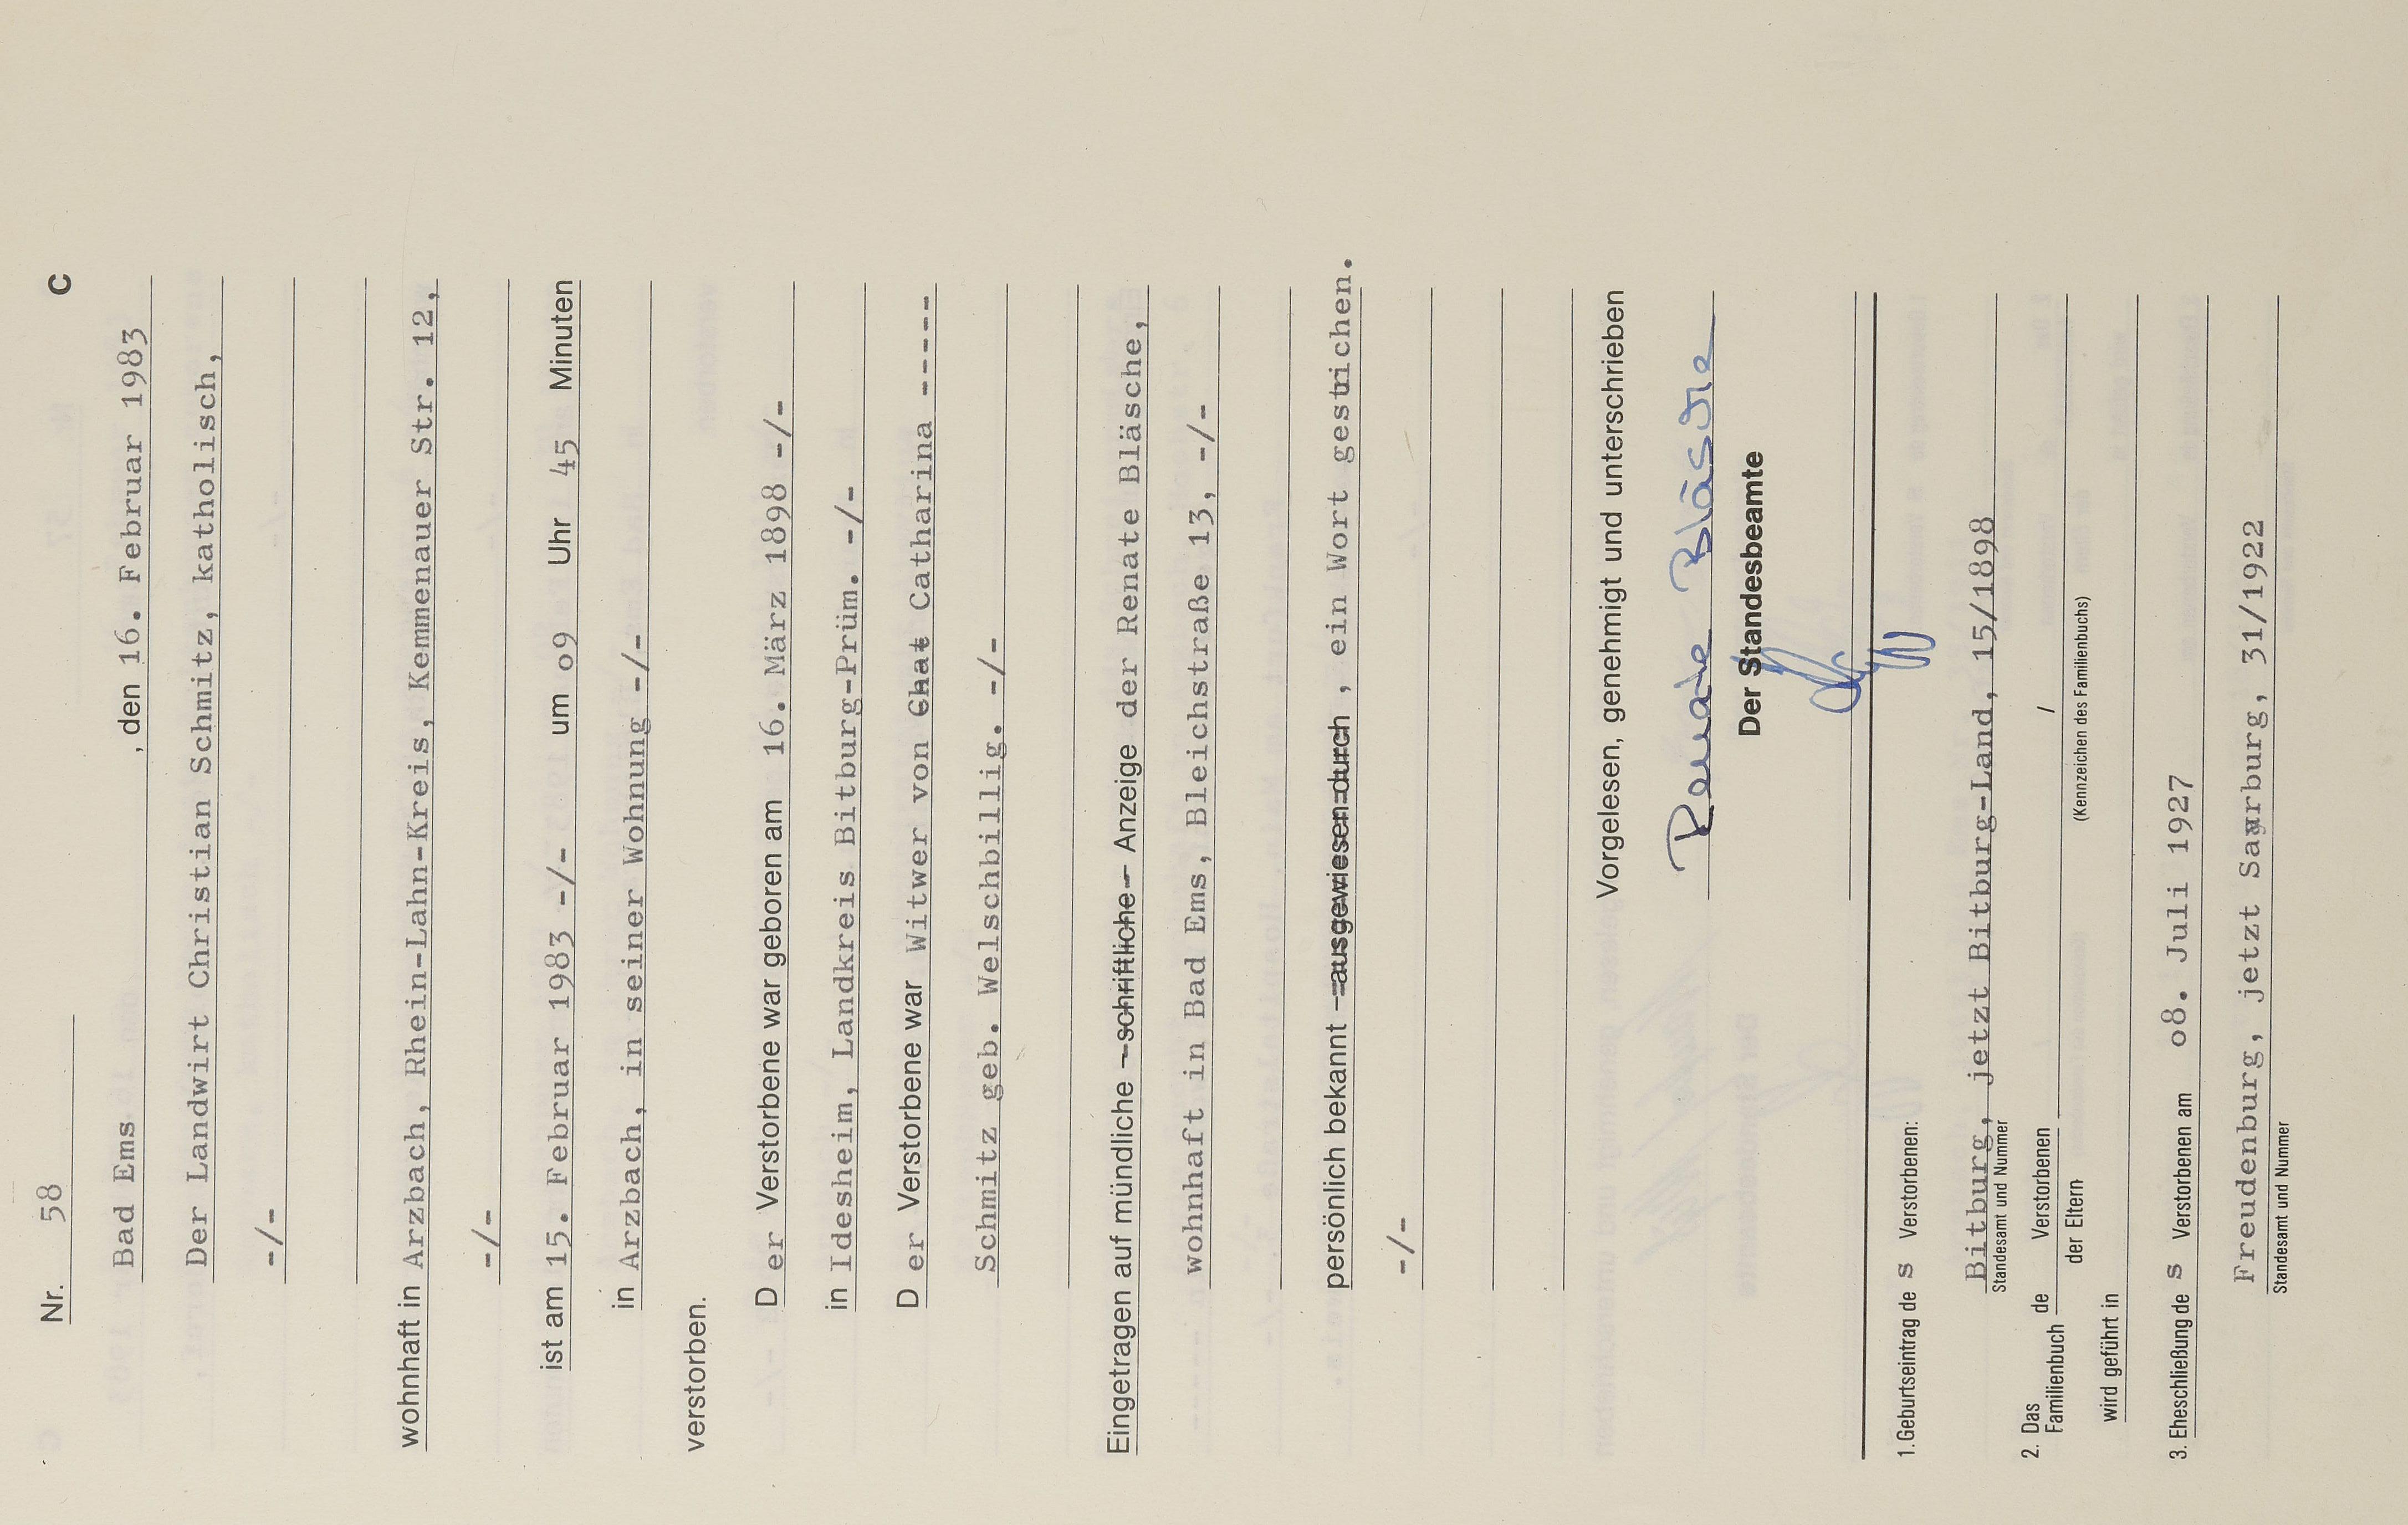 Nr. 58 C
Bad Ems , den 16. Februar 1983
Der Landwirt Christian Schmitz, katholisch,
-/-
wohnhaft in Arzbach, Rhein-Lahn-Kreis, Kemmenauer Str. 12,
-/-
ist am 15. Februar 1983 -/- um o9 Uhr 45 Minuten
in Arzbach, in seiner Wohnung -/-
verstorben.
D er Verstorbene war geboren am 16. März 1898 -/-
in Idesheim, Landkreis Bitburg-Prüm. -/-
D er Verstorbene war Witwer von Chat Catharina -----
Schmitz geb. Welschbillig. -/-
Eingetragen auf mündliche - schriftliche - Anzeige der Renate Bläsche,
wohnhaft in Bad Ems, Bleichstraße 13, -/-
persönlich bekannt - ausgewiesen durch , ein Wort gestrichen.
-/-
Vorgelesen, genehmigt und unterschrieben
Renate Bläsche
Der Standesbeamte
1. Geburtseintrag de s Verstorbenen:
Bitburg, jetzt Bitburg-Land, 15/1898
Standesamt und Nummer
2. Das Familienbuch de Verstorbenen /
der Eltern (Kennzeichen des Familienbuchs)
wird geführt in
3. Eheschließung de s Verstorbenen am o8. Juli 1927
Freudenburg, jetzt Saarburg, 31/1922
Standesamt und Nummer